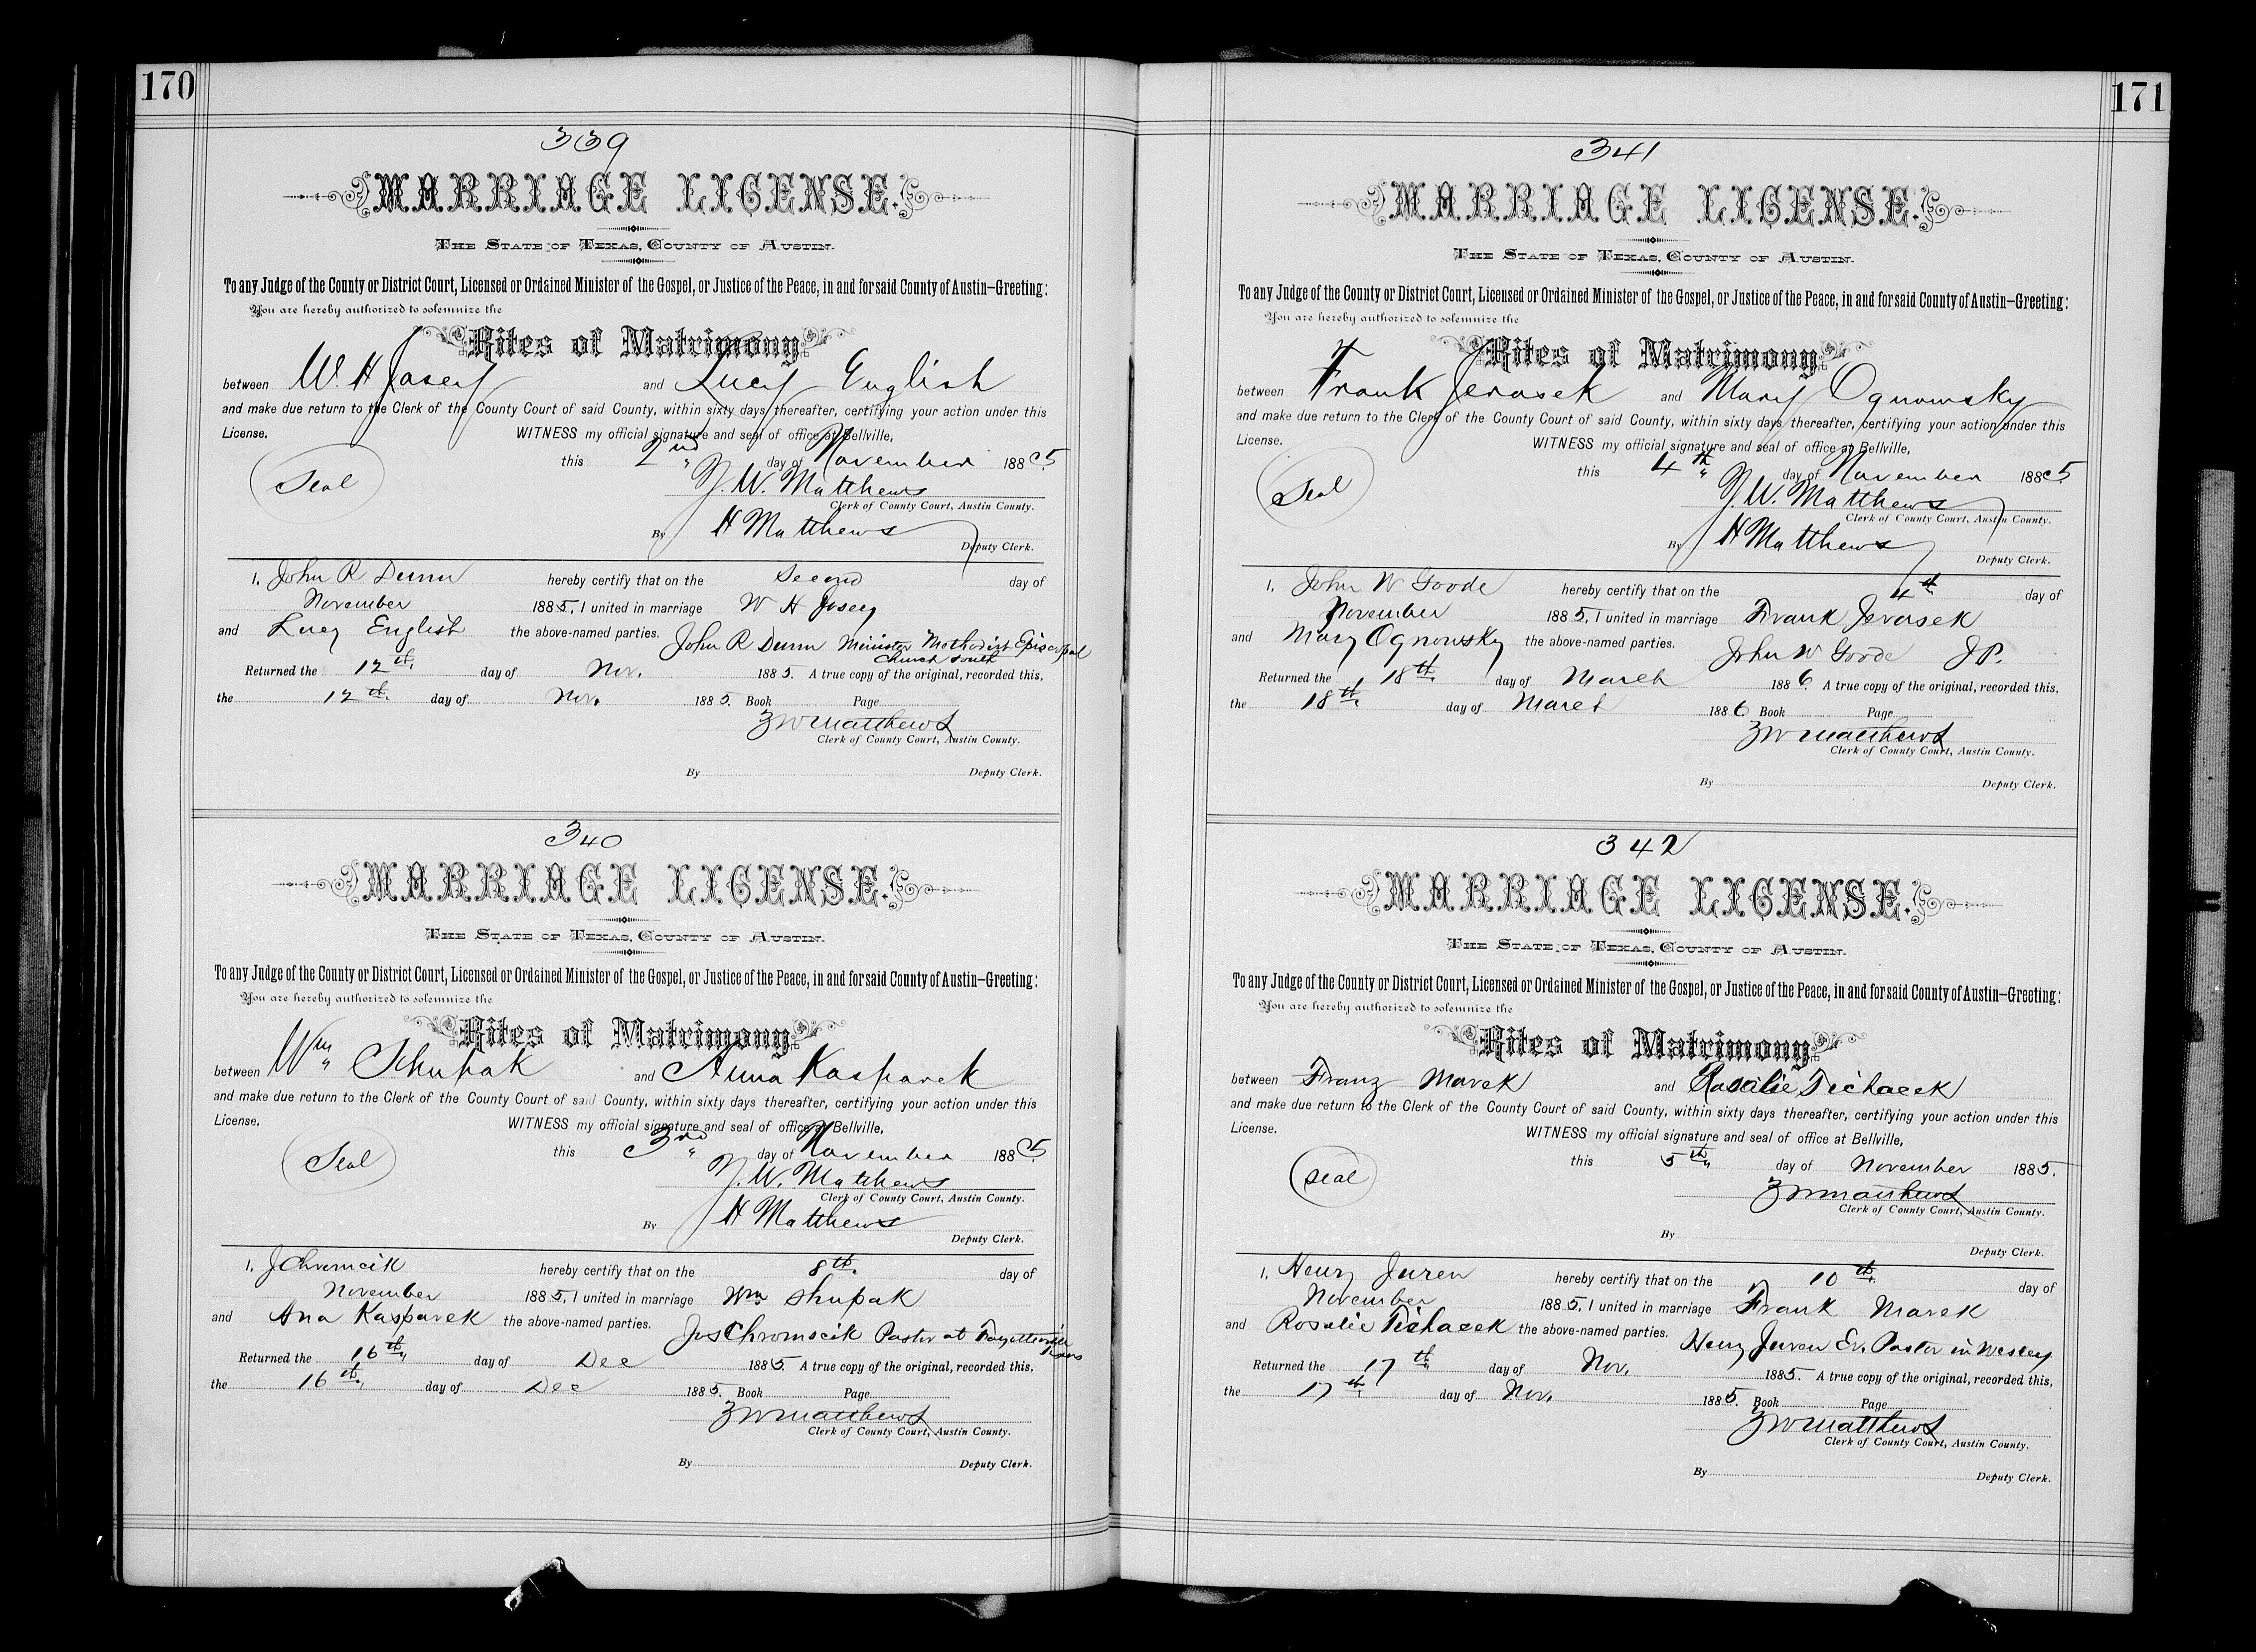 170
339
MARRIAGE LICENSE.
THE STATE OF TEXAS, COUNTY OF AUSTIN.
To any Judge of the County or District Court, Licensed or Ordained Minister of the Gospel, or Justice of the Peace, in and for said County of Austin—Greeting:
You are hereby authorized to solemnize the
Rites of Matrimony
between W. H Josey and Lucy English
and make due return to the Clerk of the County Court of said County, within sixty days thereafter, certifying your action under this
License. WITNESS my official signature and seal of office at Bellville,
Seal
this 2nd day of November 1885.
Z. W. Matthews
Clerk of County Court, Austin County.
By H Matthews
Deputy Clerk.
I, John R Dunn hereby certify that on the Second day of
November 1885, I united in marriage W H Josey
and Lucy English the above-named parties. John R Dunn Minister Methodist Episcopal
Church South
Returned the 12th. day of Nov. 1885. A true copy of the original, recorded this,
the 12th. day of Nov. 1885. Book Page
Z W Matthews
Clerk of County Court, Austin County.
By Deputy Clerk.
340
MARRIAGE LICENSE.
THE STATE OF TEXAS, COUNTY OF AUSTIN.
To any Judge of the County or District Court, Licensed or Ordained Minister of the Gospel, or Justice of the Peace, in and for said County of Austin—Greeting:
You are hereby authorized to solemnize the
Rites of Matrimony
between Wm Schupak and Anna Kasparek
and make due return to the Clerk of the County Court of said County, within sixty days thereafter, certifying your action under this
License. WITNESS my official signature and seal of office at Bellville,
Seal
this 3rd day of November 1885
Z. W. Matthews
Clerk of County Court, Austin County.
By H Matthews
Deputy Clerk.
I, J Chromcik hereby certify that on the 8th. day of
November 1885, I united in marriage Wm Shupak
and Ana Kasparek the above-named parties. Jos Chromscik Pastor at Fayetteville
Texas
Returned the 16th day of Dec 1885 A true copy of the original, recorded this,
the 16th. day of Dec 1885. Book Page
Z W Matthews
Clerk of County Court, Austin County.
By Deputy Clerk.
171
341
MARRIAGE LICENSE.
THE STATE OF TEXAS, COUNTY OF AUSTIN.
To any Judge of the County or District Court, Licensed or Ordained Minister of the Gospel, or Justice of the Peace, in and for said County of Austin—Greeting:
You are hereby authorized to solemnize the
Rites of Matrimony
between Frank Jerasek and Mary Ognowsky
and make due return to the Clerk of the County Court of said County, within sixty days thereafter, certifying your action under this
License. WITNESS my official signature and seal of office at Bellville,
Seal
this 4th day of November 1885
Z. W. Matthews
Clerk of County Court, Austin County.
By H Matthews
Deputy Clerk.
I, John W Goode hereby certify that on the 4th day of
November 1885, I united in marriage Frank Jerasek
and Mary Ognowsky the above-named parties. John W Goode J P.
Returned the 18th. day of March 1886. A true copy of the original, recorded this,
the 18th. day of March 1886 Book Page
Z W Matthews
Clerk of County Court, Austin County.
By Deputy Clerk.
342
MARRIAGE LICENSE.
THE STATE OF TEXAS, COUNTY OF AUSTIN.
To any Judge of the County or District Court, Licensed or Ordained Minister of the Gospel, or Justice of the Peace, in and for said County of Austin—Greeting:
You are hereby authorized to solemnize the
Rites of Matrimony
between Franz Marek and Rosalie Tichacek
and make due return to the Clerk of the County Court of said County, within sixty days thereafter, certifying your action under this
License. WITNESS my official signature and seal of office at Bellville,
Seal
this 5th day of November 1885.
Z W Matthews
Clerk of County Court, Austin County.
By
Deputy Clerk.
I, Henry Juren hereby certify that on the 10th. day of
November 1885, I united in marriage Frank Marek
and Rosalie Tichacek the above-named parties. Henry Juren Ev. Pastor in Wesley
Returned the 17th day of Nov. 1885. A true copy of the original, recorded this,
the 17th day of Nov. 1885. Book Page
Z W Matthews
Clerk of County Court, Austin County.
By Deputy Clerk.